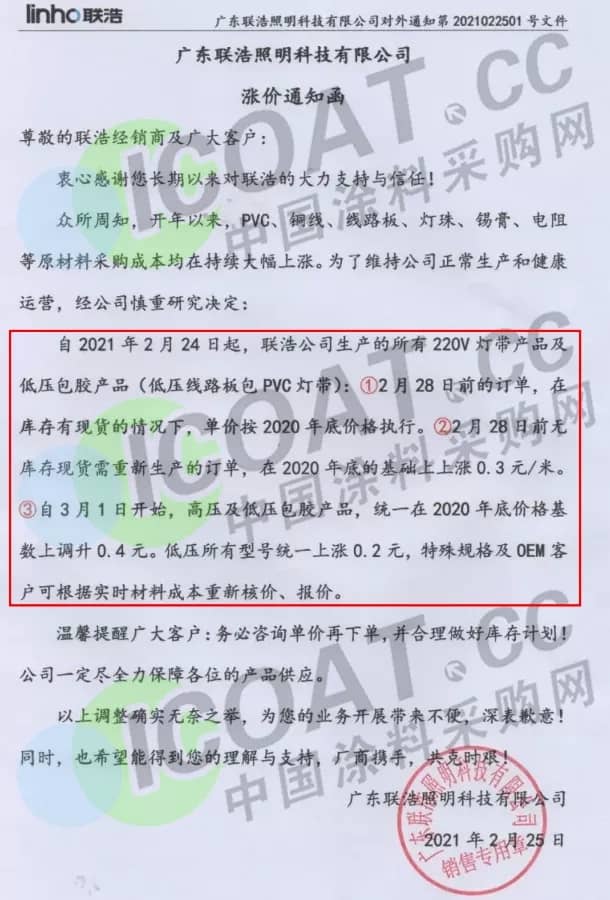 linho 联浩
广东联浩照明科技有限公司对外通知第 2021022501 号文件
广东联浩照明科技有限公司
涨价通知函
尊敬的联浩经销商及广大客户：
衷心感谢您长期以来对联浩的大力支持与信任！
众所周知，开年以来，PVC、铜线、线路板、灯珠、锡膏、电阻
等原材料采购成本均在持续大幅上涨。为了维持公司正常生产和健康
运营，经公司慎重研究决定：
自 2021 年 2 月 24 日起，联浩公司生产的所有 220V 灯带产品及
低压包胶产品（低压线路板包 PVC 灯带）：①2 月 28 日前的订单，在
库存有现货的情况下，单价按 2020 年底价格执行。②2 月 28 日前无
库存现货需重新生产的订单，在 2020 年底的基础上上涨 0.3 元/米。
③自 3 月 1 日开始，高压及低压包胶产品，统一在 2020 年底价格基
数上调升 0.4 元。低压所有型号统一上涨 0.2 元，特殊规格及 OEM 客
户可根据实时材料成本重新核价、报价。
温馨提醒广大客户：务必咨询单价再下单，并合理做好库存计划！
公司一定尽全力保障各位的产品供应。
以上调整确实无奈之举，为您的业务开展带来不便，深表歉意！
同时，也希望能得到您的理解与支持，厂商携手，共克时艰！
广东联浩照明科技有限公司
2021 年 2 月 25 日
广东联浩照明科技有限公司
销售专用章
ICOAT.CC
中国涂料采购网
ICOAT.CC
中国涂料采购网
ICOAT.CC
中国涂料采购网